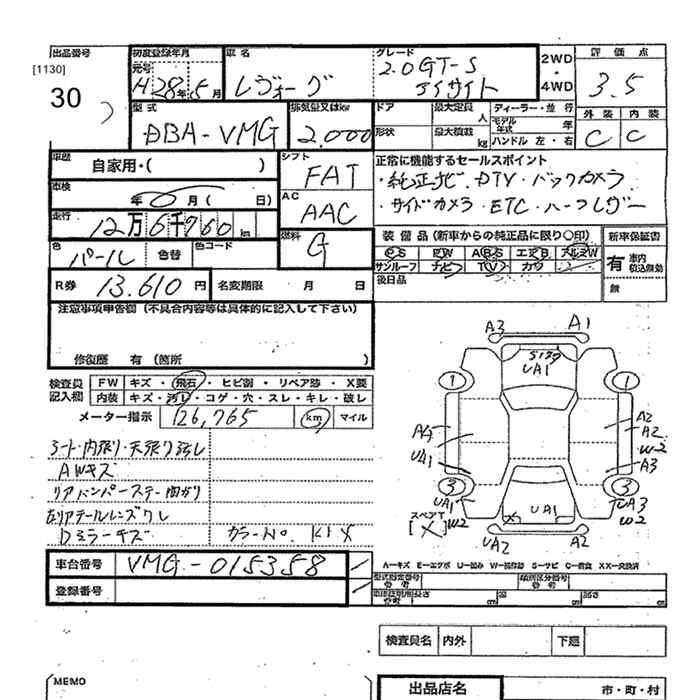 出品番号 初度登録年月 車名 グレード 2WD・4WD 評価点
[1130] 元号
30 H28年5月 レヴォーグ 2.0GT-S アイサイト 3.5
型式 排気量又はkw ドア 最大定員 人 ディーラー・並行 外装 内装
DBA-VMG 2.000 形状 最大積載 kg モデル年式 年 C C
ハンドル 左・右
車歴 自家用・( ) シフト FAT 正常に機能するセールスポイント
車検 年 0 月( 日) AC AAC ・純正ナビ・DTV・バックカメラ
走行 12万6千760km ・サイドカメラ・ETC・ハーフレザー
色 パール 色替 色コード 燃料 G 装備品(新車からの純正品に限り○印) 新車保証書
PS PW ABS エアB アルミW 有 車内 積込無効
サンルーフ ナビ TV カワ
R券 13.610円 名変期限 月 日 後日品 無
注意事項申告欄(不具合内容等は具体的に記入して下さい)
修復歴 有(箇所 )
検査員記入欄 FW キズ・飛石・ヒビ割・リペア跡・X要
内装 キズ・汚レ・コゲ・穴・スレ・キレ・破レ
メーター指示 126,765 km マイル
シート・内張り・天張り汚レ
AWキズ
リアバンパーステー曲がり
左リアテールレンズワレ
Dミラーキズ カラーNo. K1X
A3 A1
S179
UA1
1 1
A4 A2
A2
W2
UA1 A3
3 3
UA1 W2 UA1 UA3
W2
スペアT
[X] X
UA2 A2
車台番号 VMG-015358
登録番号
A=キズ E=エクボ U=凹み W=補修跡 S=サビ C=腐食 XX=交換済
型式指定番号 参考 類別区分番号 参考
車検証明用 参考 長さ cm 幅 cm 高さ cm
検査員名 内外 下廻
MEMO 出品店名 市・町・村